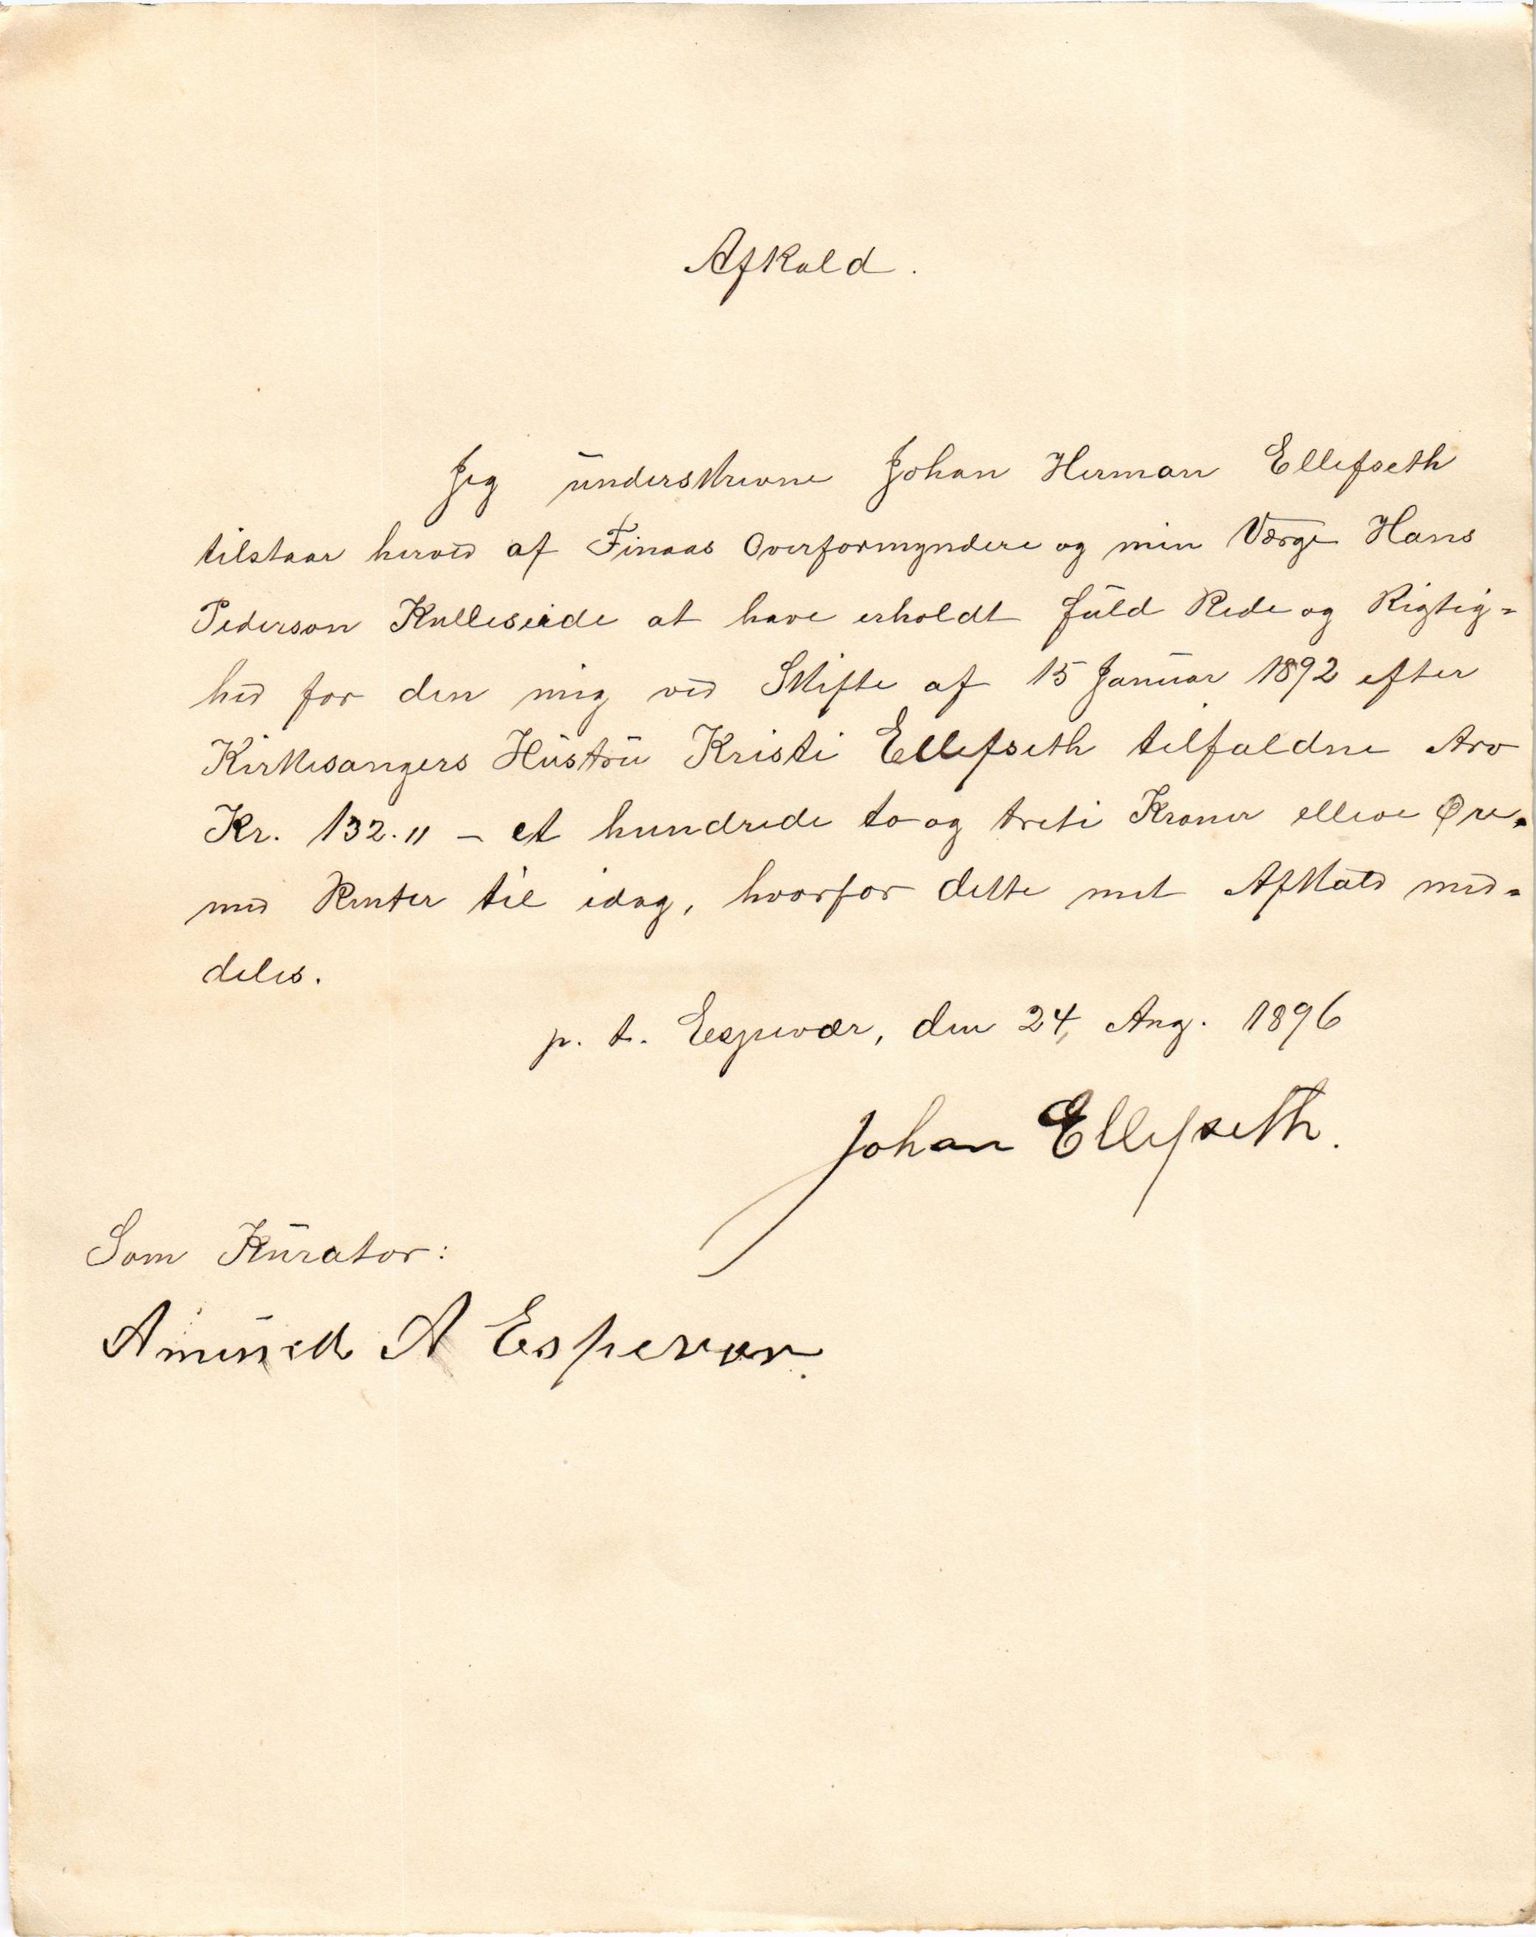 Afkald.
Jeg underskrevne Johan Herman Ellefseth
tilstaar herved af Finaas Overformyndere og min Værge Hans
Pederson Kulleseide at have erholdt fuld Rede og Rigtig=
hed for den mig ved Skifte af 15 Januar 1892 efter
Kirkesangers Hustru Kristi Ellefseth tilfaldne Arv
Kr. 132.11 – et hundrede to og treti Kroner elleve Øre.
med Renter til idag, hvorfor dette mit Afkald med=
deles.
p. t. Espevær, den 24, Aug. 1896
Johan Ellefseth.
Som Kurator:
Amund A Espevær.